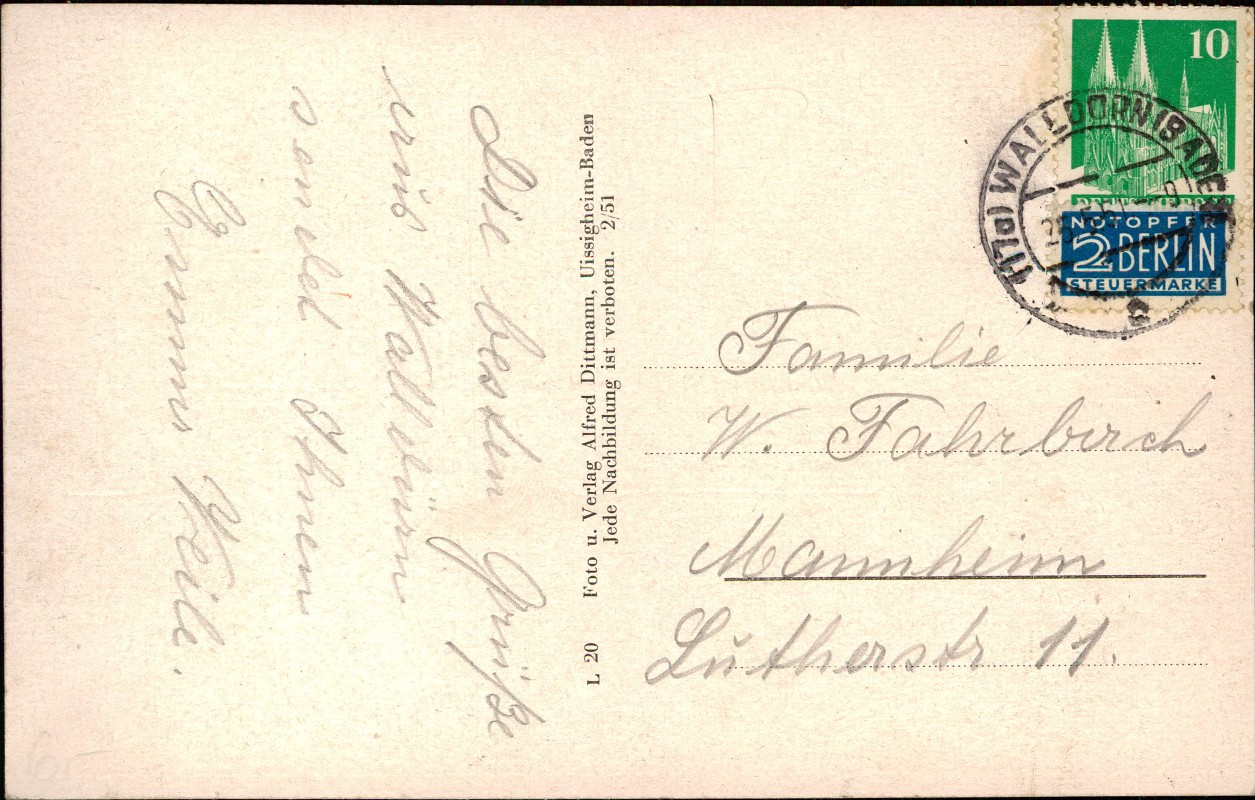 Die besten Grüße
aus Walldürn
sendet Ihnen
Emma Weili.
L 20 Foto u. Verlag Alfred Dittmann, Uissigheim-Baden
Jede Nachbildung ist verboten. 2/51
10
DEUTSCHE POST
NOTOPFER
2 BERLIN
STEUERMARKE
(17a) WALLDÜRN (BADEN)
Familie
W. Fahrbach
Mannheim
Lutherstr 11.
6.-